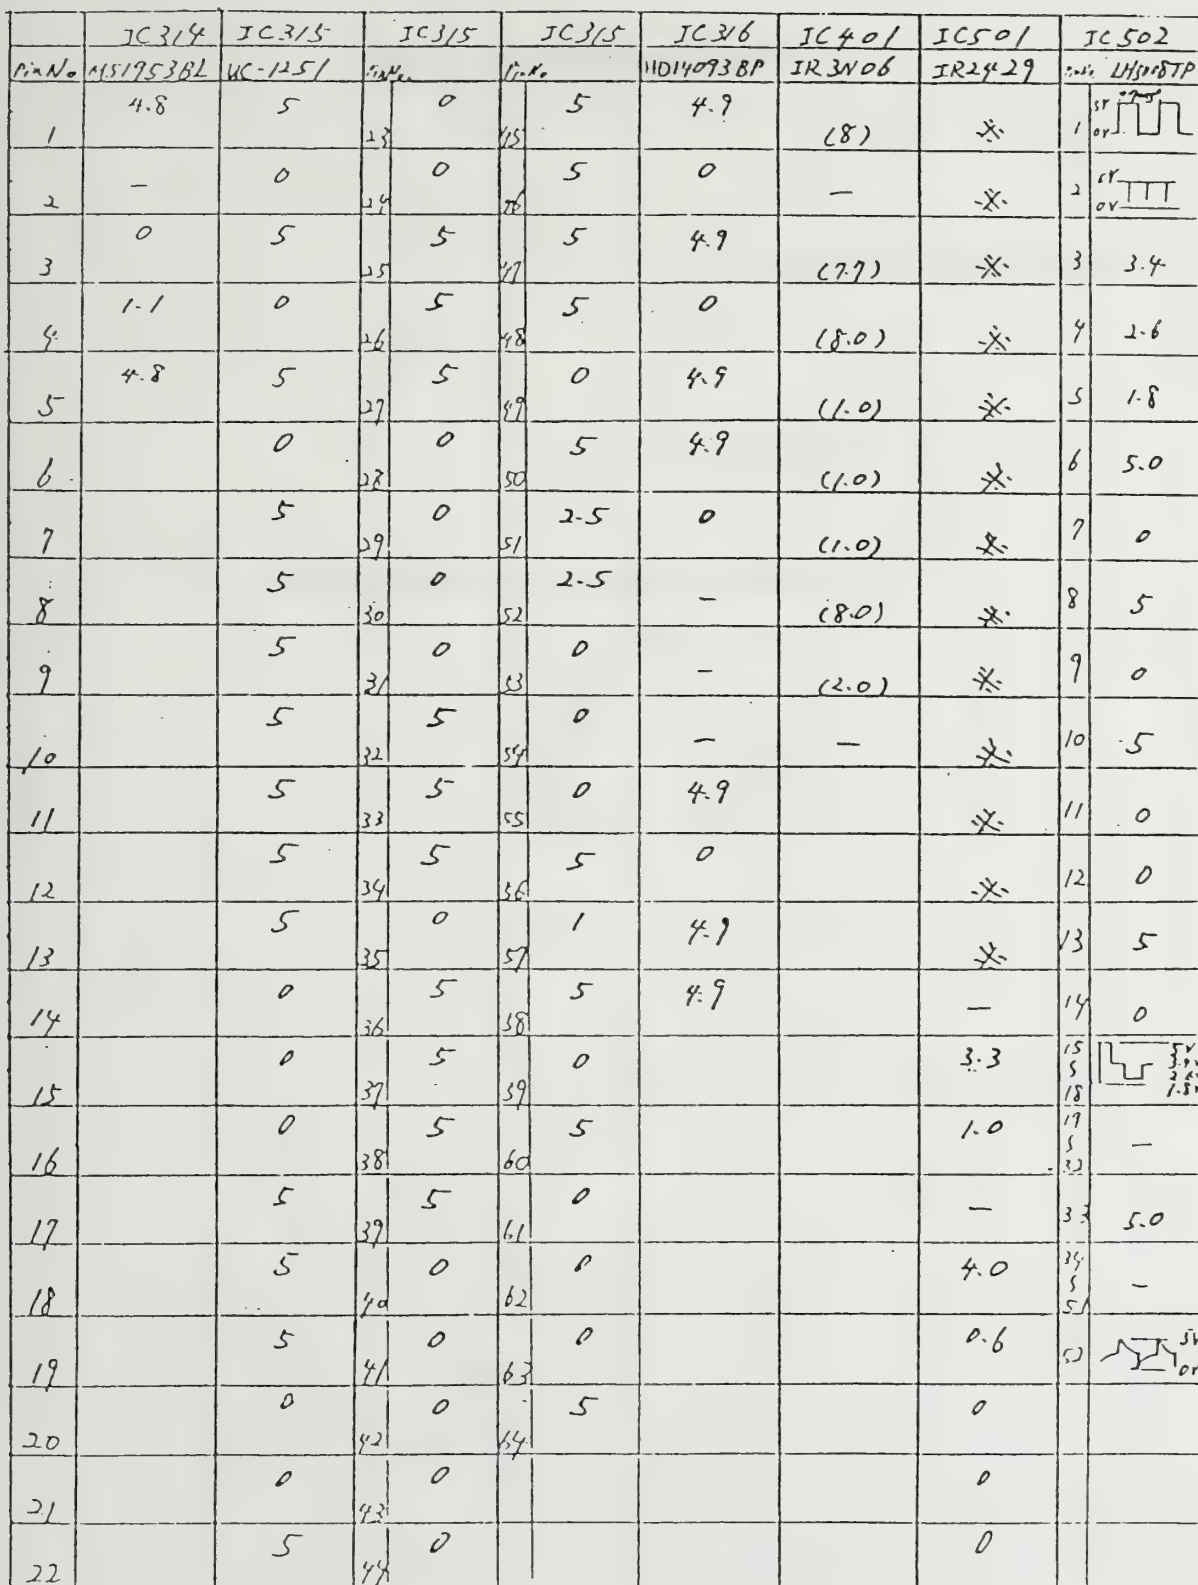 IC314 IC315 IC315 IC315 IC316 IC401 IC501 IC502
Pin No M51953BL UC-1251 Pin No. Pin No. HD14093BP IR3N06 IR2429 Pin No. LH5008TP
1 4.8 5 23 0 45 5 4.9 (8) ※ 1 5V 0V
2 — 0 24 0 46 5 0 — ※ 2 5V 0V
3 0 5 25 5 47 5 4.9 (7.7) ※ 3 3.4
4 1.1 0 26 5 48 5 0 (8.0) ※ 4 2.6
5 4.8 5 27 5 49 0 4.9 (1.0) ※ 5 1.8
6 0 28 0 50 5 4.9 (1.0) ※ 6 5.0
7 5 29 0 51 2.5 0 (1.0) ※ 7 0
8 5 30 0 52 2.5 — (8.0) ※ 8 5
9 5 31 0 53 0 — (2.0) ※ 9 0
10 5 32 5 54 0 — — ※ 10 5
11 5 33 5 55 0 4.9 ※ 11 0
12 5 34 5 56 5 0 ※ 12 0
13 5 35 0 57 1 4.9 ※ 13 5
14 0 36 5 58 5 4.9 — 14 0
15 0 37 5 59 0 3.3 15 ~ 18 5V 3.4V 2.6V 1.8V
16 0 38 5 60 5 1.0 19 ~ 32 —
17 5 39 5 61 0 — 33 5.0
18 5 40 0 62 0 4.0 34 ~ 51 —
19 5 41 0 63 0 0.6 52 5V 0V
20 0 42 0 64 5 0
21 0 43 0 0
22 5 44 0 0